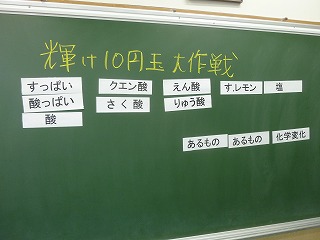 輝け10円玉大作戦
すっぱい クエン酸 えん酸 す,レモン 塩
酸っぱい さく酸 りゅう酸
酸
あるもの あるもの 化学変化